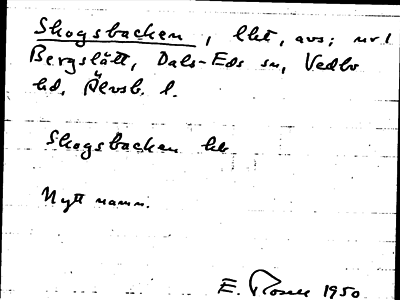 Skogsbacken, lht, avs; nr 1
Bergslätt, Dals-Eds sn, Vedbo
hd, Älvsb. l.
Skogsbacken
Nytt namn.
E. 1950